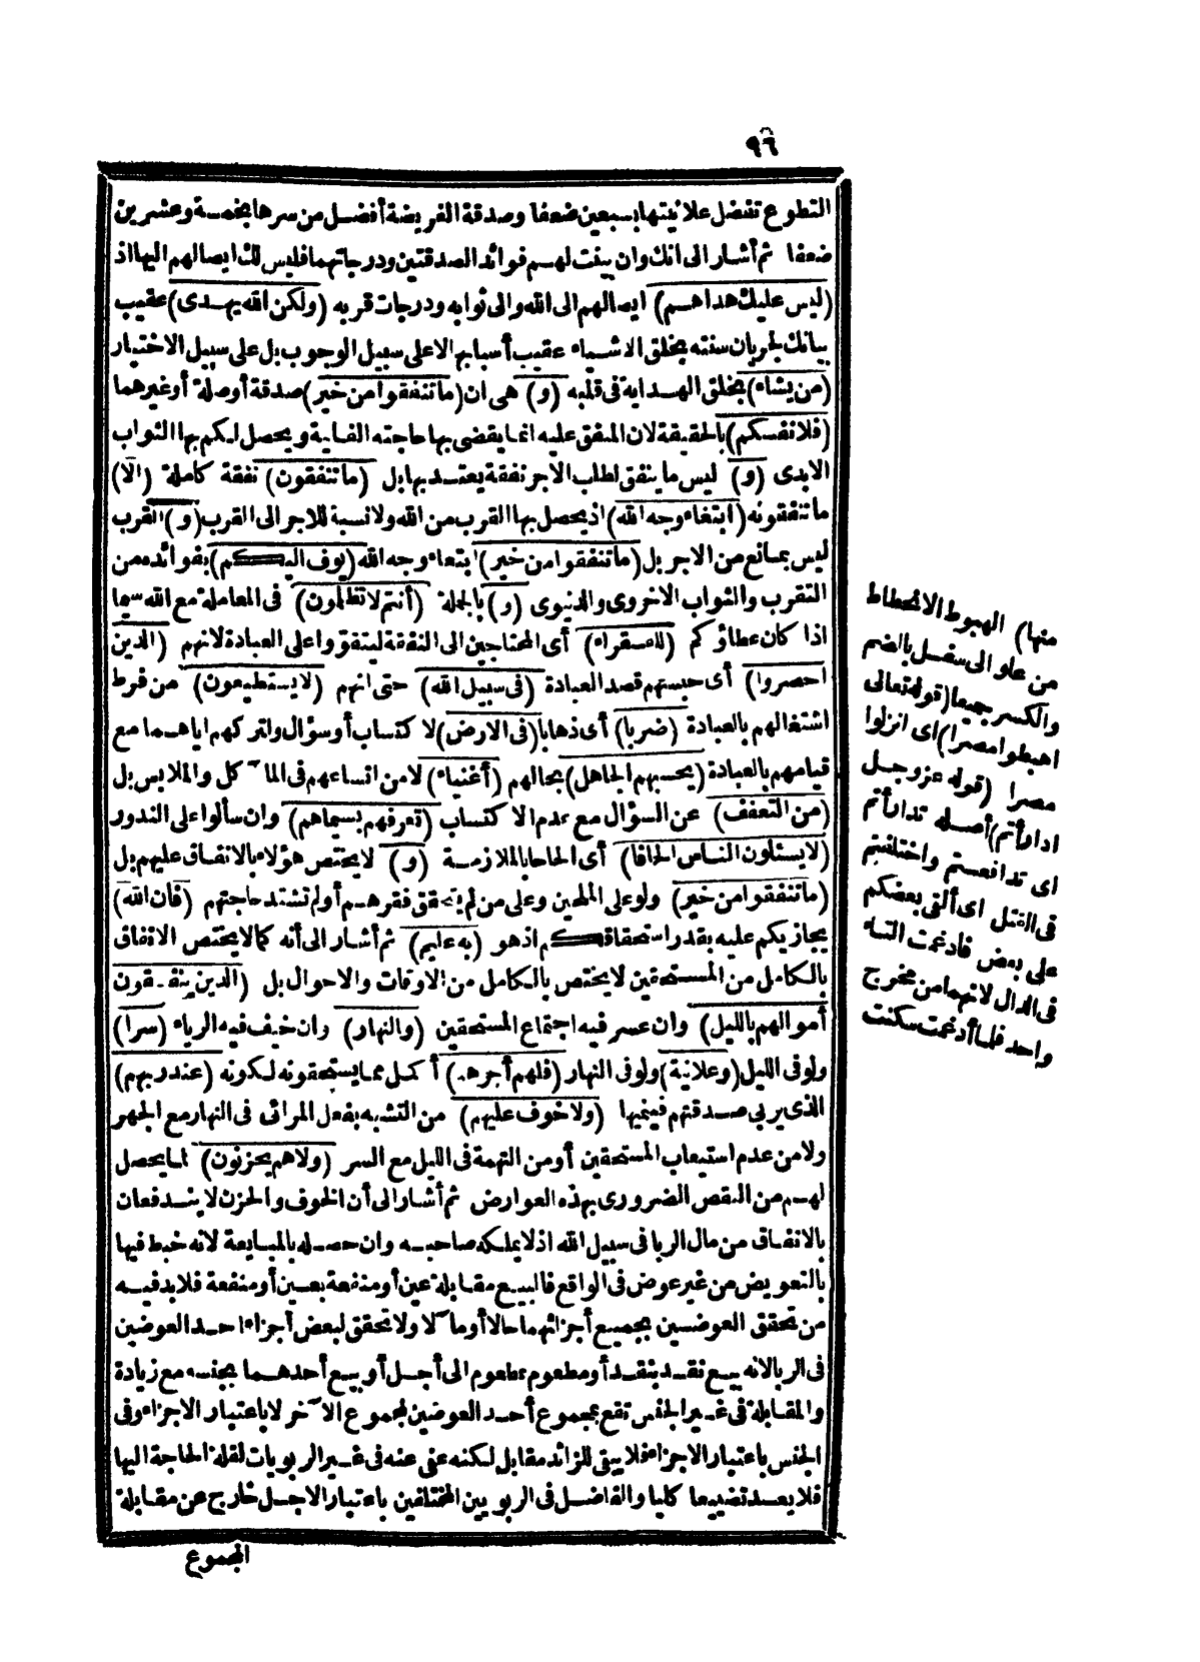 ٩٦
التطوع تفضل علانيتها بسبعين ضعفا وصدقة الفريضة أفضل من سرها بخمسة وعشرين
ضعفا ثم أشار الى انك وان بينت لهم فوائد الصدقتين ودرجاتهما فليس لك ايصالهم اليها اذ
(ليس عليك هداهم) ايصالهم الى الله والى ثوابه ودرجات قربه (ولكن الله يهدى) عقيب
بيانك لجريان سنته بخلق الاشياء عقيب أسبابها لا على سبيل الوجوب بل على سبيل الاختيار
(من يشاء) بخلق الهداية فى قلبه (و) هى ان (ما تنفقوا من خير) صدقة أو صلة أو غيرهما
(فلانفسكم) بالحقيقة لان المنفق عليه انما يقضى بها حاجته الفانية ويحصل لكم بها الثواب
الابدى (و) ليس ما ينفق لطلب الاجر نفقة يعتد بها بل (ما تنفقون) نفقة كاملة (الا)
ما تنفقونه (ابتغاء وجه الله) اذ يحصل بها القرب من الله ولا نسبة للاجر الى القرب (و) القرب
ليس بمانع من الاجر بل (ما تنفقوا من خير) ابتغاء وجه الله (يوف اليكم) بفوائده من
التقرب والثواب الاخروى والدنيوى (و) بالجملة (أنتم لا تظلمون) فى المعاملة مع الله سيما
اذا كان عطاؤكم (للفقراء) أى المحتاجين الى النفقة ليتقووا على العبادة لانهم (الذين
احصروا) أى حبستهم قصد العبادة (فى سبيل الله) حتى انهم (لا يستطيعون) من فرط
اشتغالهم بالعبادة (ضربا) أى ذهابا (فى الارض) لاكتساب أو سؤال ولتركهم اياهما مع
قيامهم بالعبادة (يحسبهم الجاهل) بحالهم (أغنياء) لا من اتساعهم فى المآكل والملابس بل
(من التعفف) عن السؤال مع عدم الاكتساب (تعرفهم بسيماهم) وان سألوا على الندور
(لا يسئلون الناس الحافا) أى الحاحا بالملازمة (و) لا يختص هؤلاء بالانفاق عليهم بل
(ما تنفقوا من خير) ولو على الملحين وعلى من لم يتحقق فقرهم أو لم تشتد حاجتهم (فان الله)
يجازيكم عليه بقدر استحقاقكم اذ هو (به عليم) ثم أشار الى أنه كما لا يختص الانفاق
بالكامل من المستحقين لا يختص بالكامل من الاوقات والاحوال بل (الذين ينفقون
أموالهم بالليل) وان عسر فيه اجتماع المستحقين (والنهار) وان خيف فيه الرياء (سرا)
ولو فى الليل (وعلانية) ولو فى النهار (فلهم أجرهم) أكمل مما يستحقونه لكونه (عند ربهم)
الذى يربى صدقتهم فينميها (ولا خوف عليهم) من التشبه بفعل المرائى فى النهار مع الجهر
ولا من عدم استيعاب المستحقين أو من التهمة فى الليل مع السر (ولا هم يحزنون) لما يحصل
لهم من النقص الضرورى بهذه العوارض ثم أشار الى أن الخوف والحزن لا يندفعان
بالانفاق من مال الربا فى سبيل الله اذ لا يملكه صاحبه وان حصله بالمبايعة لانه خبط فيها
بالتعويض من غير عوض فى الواقع فالبيع مقابلة عين أو منفعة بعين أو منفعة فلا بد فيه
من تحقق العوضين بجميع أجزائهما حالا أو مآلا ولا تحقق لبعض أجزاء احد العوضين
فى الربا لانه بيع نقد بنقد أو مطعوم بمطعوم الى أجل أو بيع أحدهما بجنسه مع زيادة
والمقابلة فى غير الجنس تقع بمجموع أحد العوضين لمجموع الآخر لا باعتبار الاجزاء وفى
الجنس باعتبار الاجزاء فلا يبقى للزائد مقابل لكنه عفى عنه فى غير الربويات لقلة الحاجة اليها
فلا يعد تضييعا كليا والفاضل فى الربويين المختلفين باعتبار الاجل خارج عن مقابلة
المجموع
منها) الهبوط الانحطاط
من علو الى سفل بالضم
والكسر جميعا (قوله تعالى
اهبطوا مصرا) اى انزلوا
مصرا (قوله عز وجل
ادارأتم) أصله تدارأتم
اى تدافعتم واختلفتم
فى القتل اى ألقى بعضكم
على بعض فادغمت التاء
فى الدال لانهما من مخرج
واحد فلما أدغمت سكنت